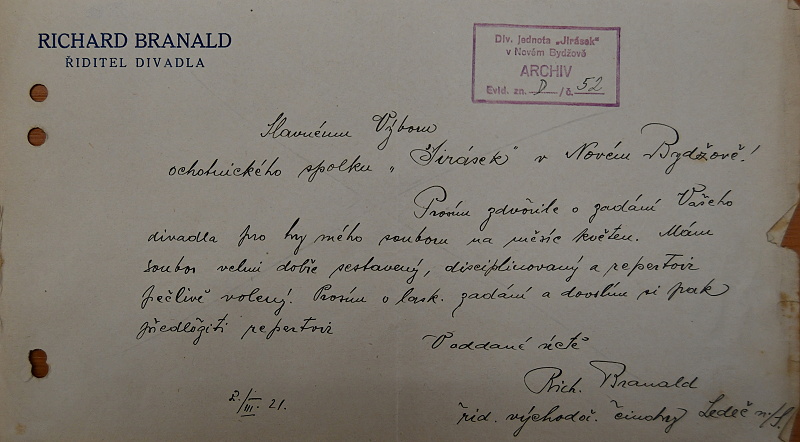 RICHARD BRANALD
ŘIDITEL DIVADLA
Div. Jednota „Jirásek"
v Novém Bydžově
ARCHIV
Evid. zn. D /č. 52
Slavnému Výboru
ochotnického spolku „Jirásek" v Novém Bydžově!
Prosím zdvořile o zadání Vašeho
divadla pro hry mého souboru na měsíc květen. Mám
soubor velmi dobře sestavený, disciplinovaný a repertoir
pečlivě volený. Prosím o lask. zadání a dovolím si pak
předložiti repertoir
V oddané úctě
Rich. Branald
2./III. 21.
řid. východoč. činohry Ledeč n/S.